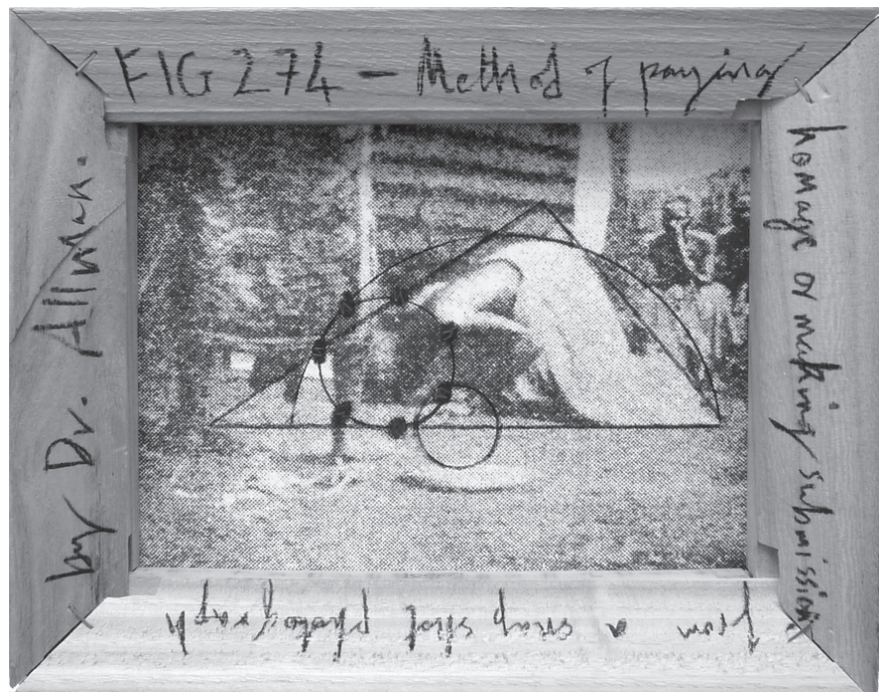 FIG 274 – Method of paying
homage or making submission
from a snap shot photograph
by Dr. Allman.